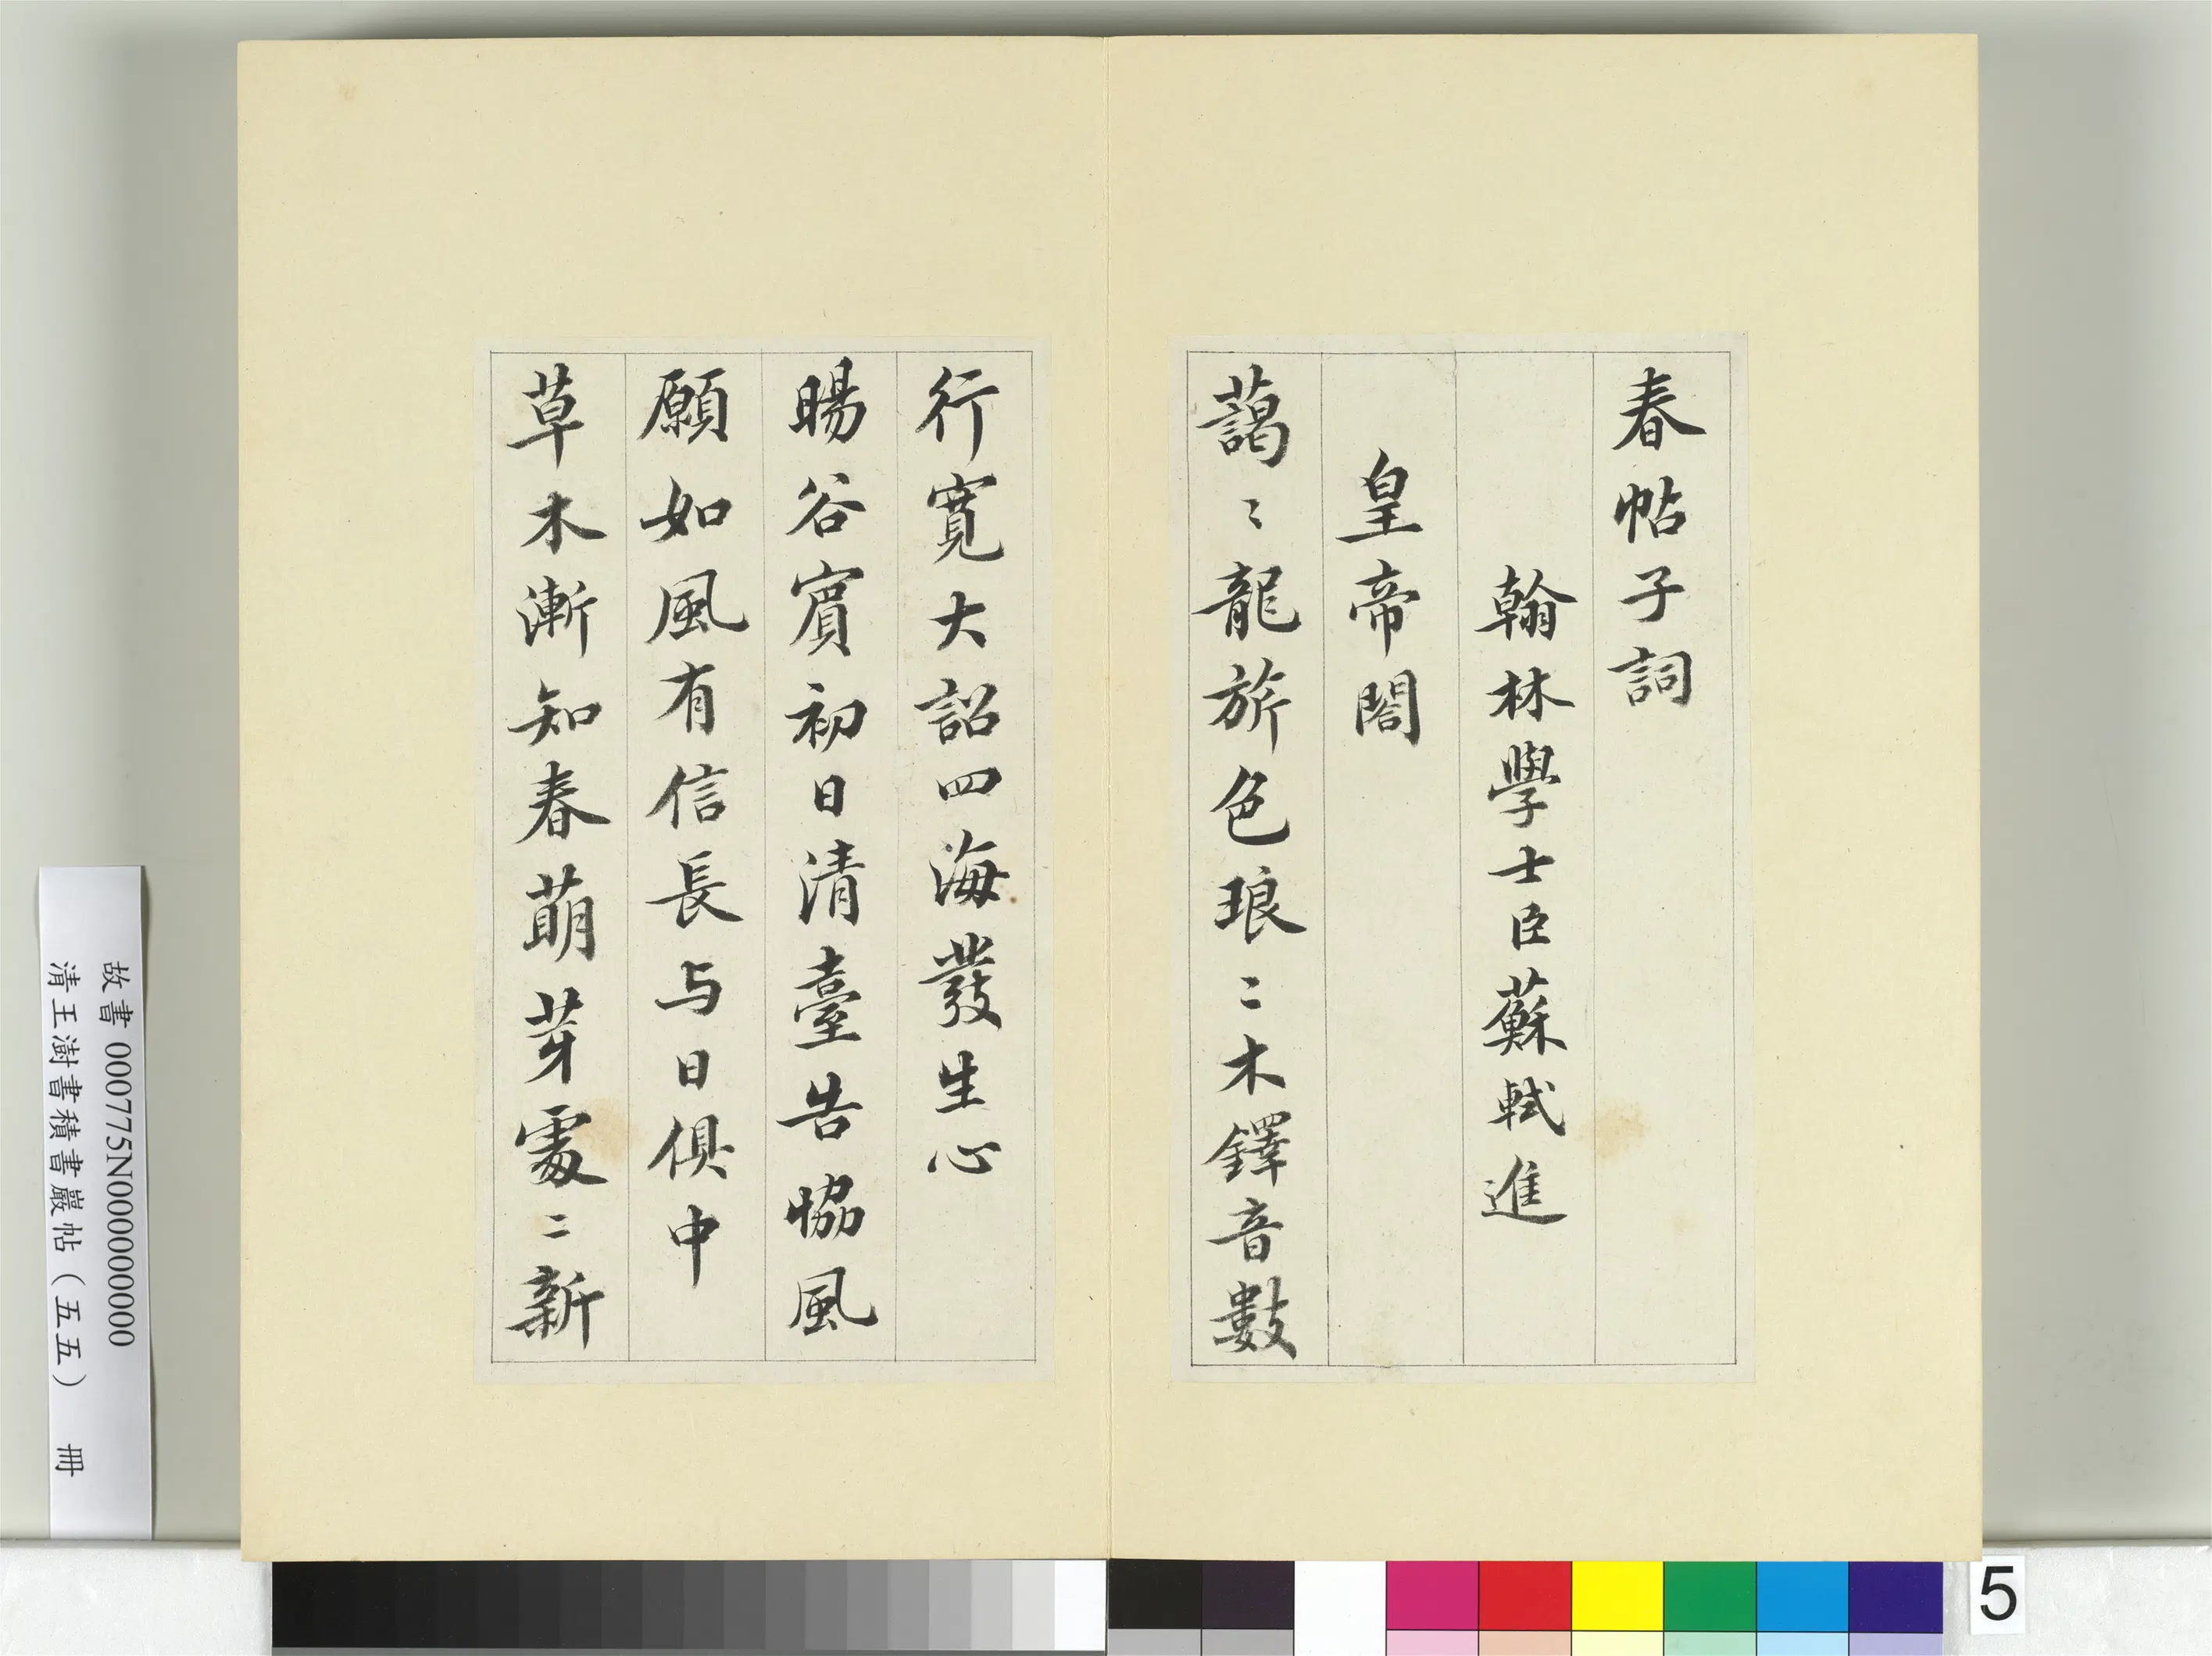 春帖子詞
翰林學士臣蘇軾進
皇帝閣
藹〻龍旂色琅〻木鐸音數
行寬大詔四海發生心
暘谷賓初日清臺告協風
願如風有信長与日俱中
草木漸知春萌芽處〻新
故書 000775N000000000
清王澍書積書巖帖（五五） 冊
5